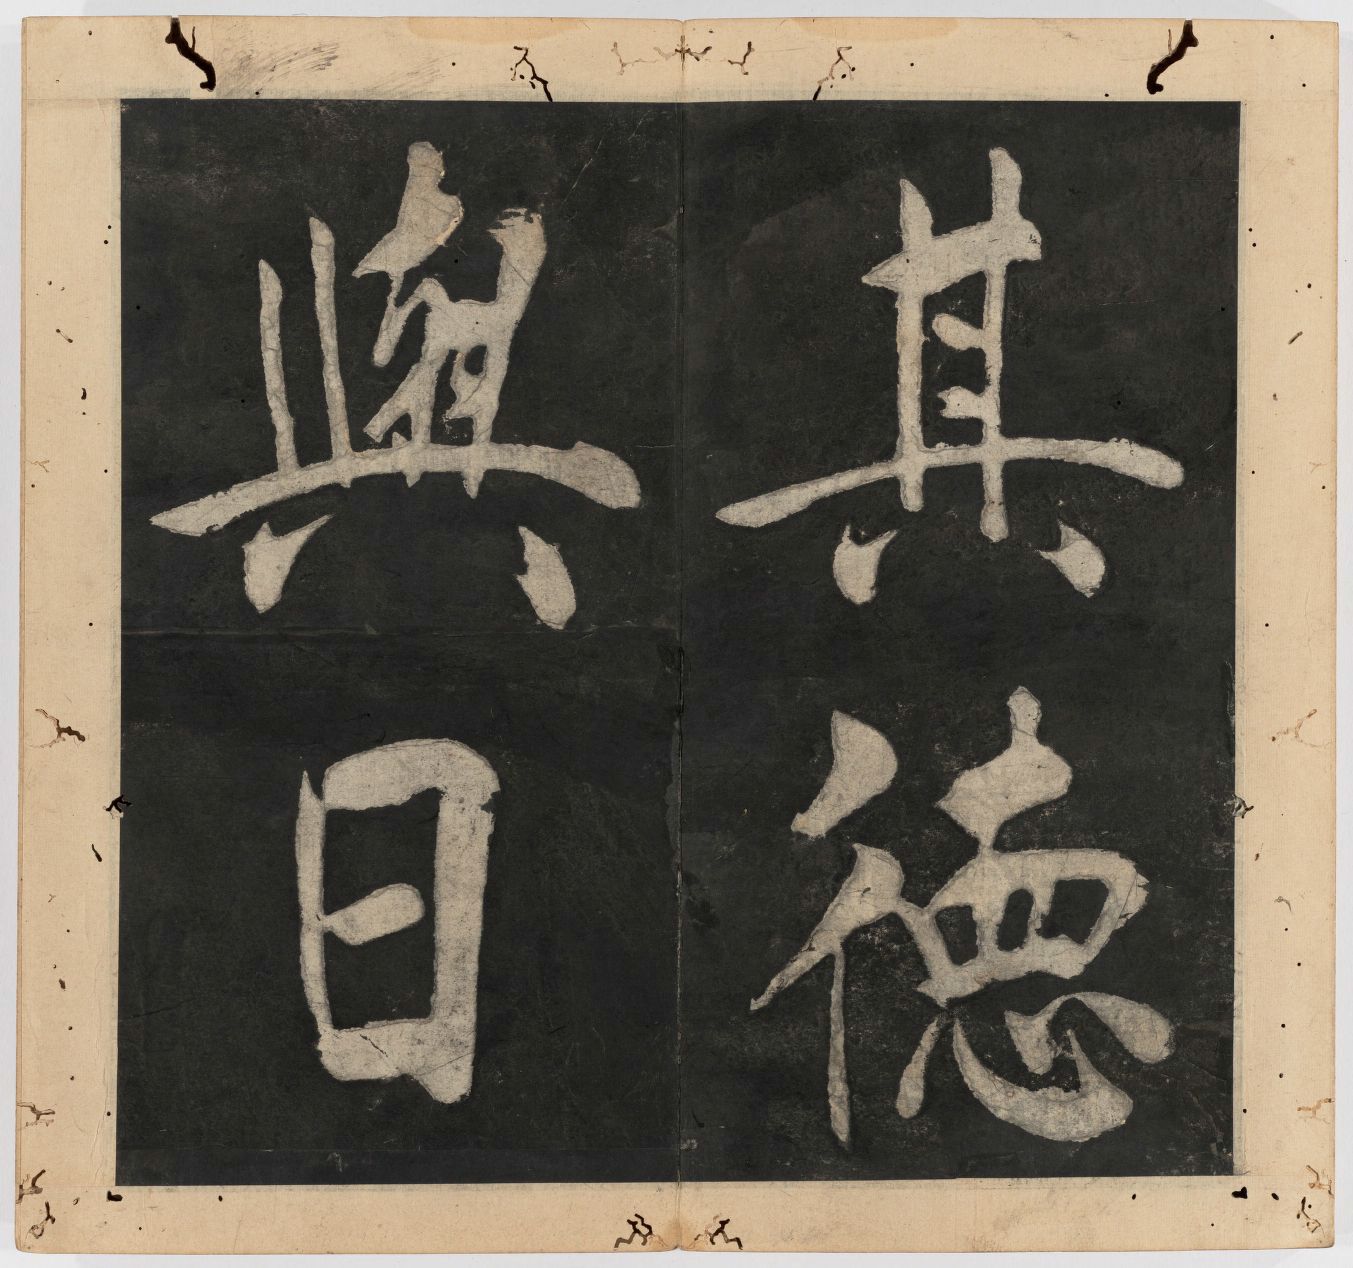 其德
與日